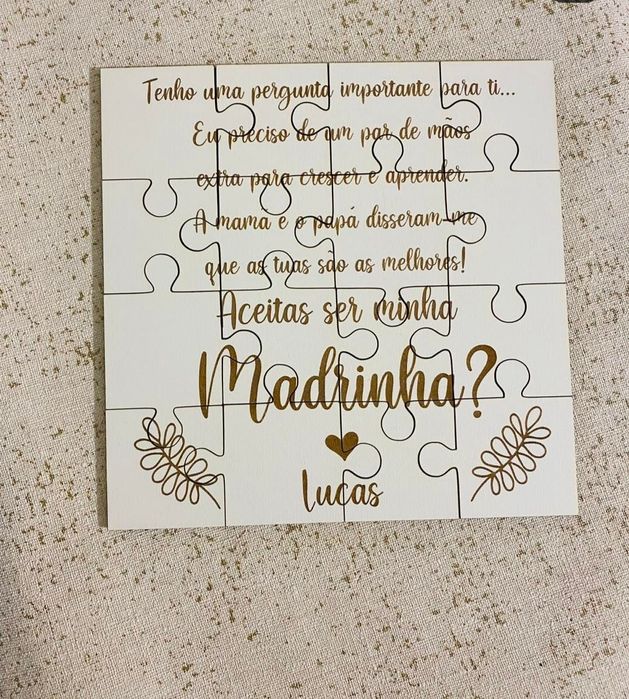 Tenho uma pergunta importante para ti...
Eu preciso de um par de mãos
extra para crescer e aprender.
A mama e o papá disseram-me
que as tuas são as melhores!
Aceitas ser minha
Madrinha?
Lucas